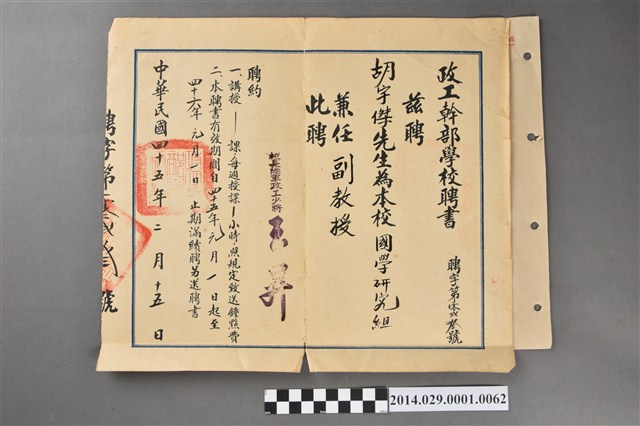 政工幹部學校聘書
聘字第零弍叁號
茲聘
胡宇傑先生為本校國學研究組
兼任副教授
此聘
校長陸軍政工少將
昇
聘約
一、講授 課每週授課 小時照規定致送鐘點費
二、本聘書有效期間自四十五年元月一日起至
四十六年元月一日止期滿續聘另送聘書
中華民國四十五年二月十五日
聘字第 號
2014.029.0001.0062